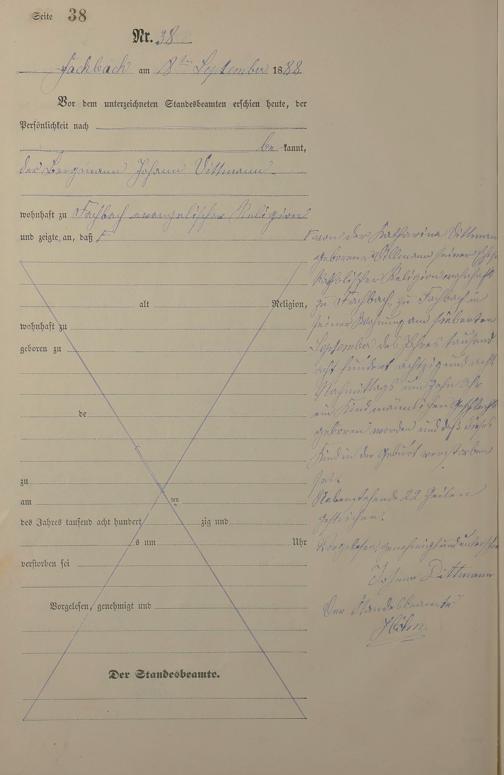 Seite 38
Nr. 38
Fachbach am 8ten September 1888
Vor dem unterzeichneten Standesbeamten erschien heute, der
Persönlichkeit nach
be kannt,
der Bergmann Johann Dittmann
wohnhaft zu Fachbach evangelischer Religion
und zeigte an, daß F
alt Religion,
wohnhaft zu
geboren zu
de
zu
am ten
des Jahres tausend acht hundert zig und
s um Uhr
verstorben sei
Vorgelesen, genehmigt und
Der Standesbeamte.
F von der Katharina Dittmann
geborene seiner Ehefrau
katholischer Religion wohnhaft
zu Fachbach zu Fachbach in
seiner Wohnung am siebenten
September des Jahres tausend
acht hundert achtzig und acht
Nachmittags um zehn Uhr
ein Kind männlichen Geschlechts
geboren worden und daß dieses
Kind in der Geburt verstorben
sei.
Nebenstehende 22 Zeilen
gestrichen.
Vorgelesen, genehmigt und unterschrieben
Johann Dittmann
Der Standesbeamte